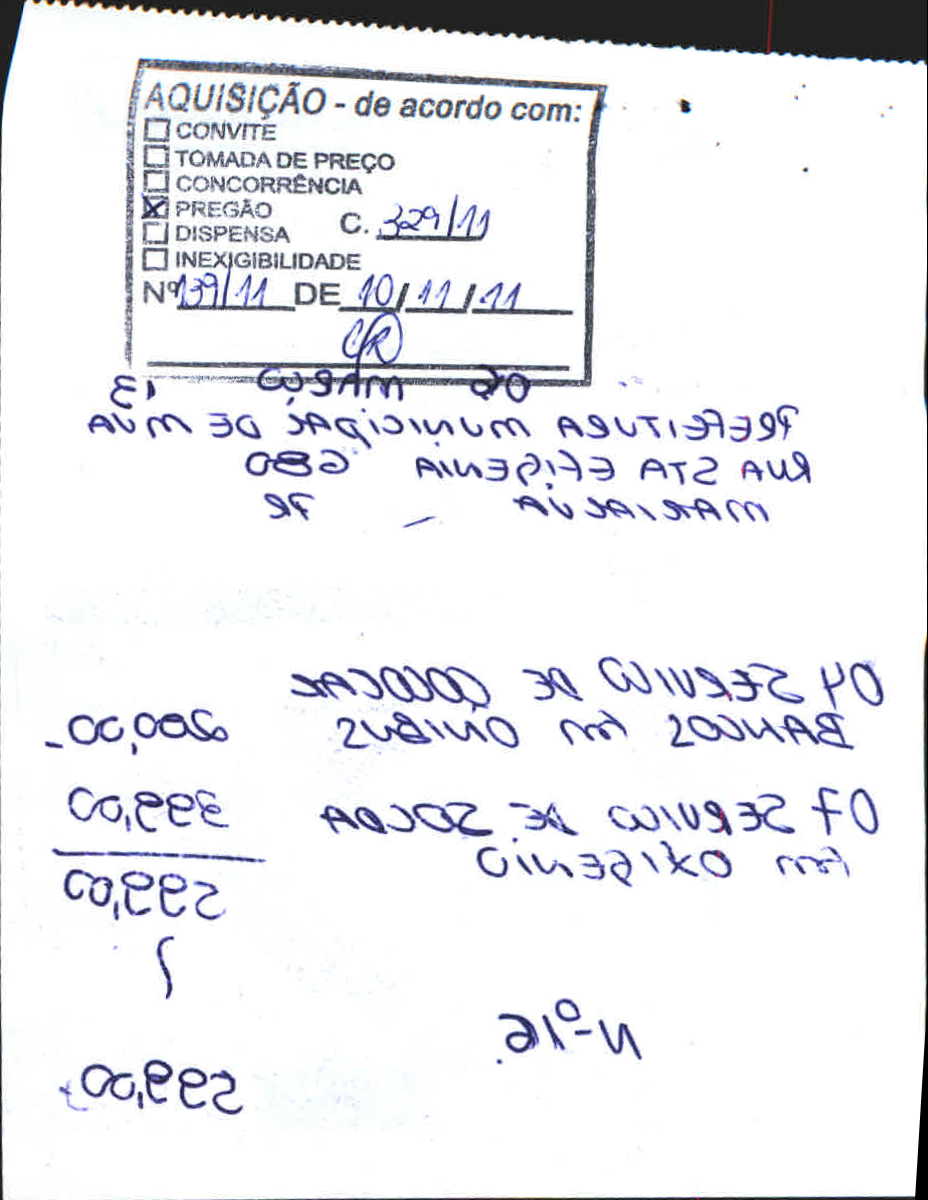 AQUISIÇÃO - de acordo com:
CONVITE
TOMADA DE PREÇO
CONCORRÊNCIA
X PREGÃO
C. 329/11
DISPENSA
INEXIGIBILIDADE
Nº 139/11 DE 10/11/11
06 MARCO 13
PREFEITURA MUNICIPAL DE MUA
RUA STA EFIGENIA 680
MARIALVA - PR
04 SERVICO DE COLOCAR
BANCOS EM ÔNIBUS 200,00-
07 SERVICO DE SOLDA 399,00
EM OXIGENIO
599,00
N-º16
599,00